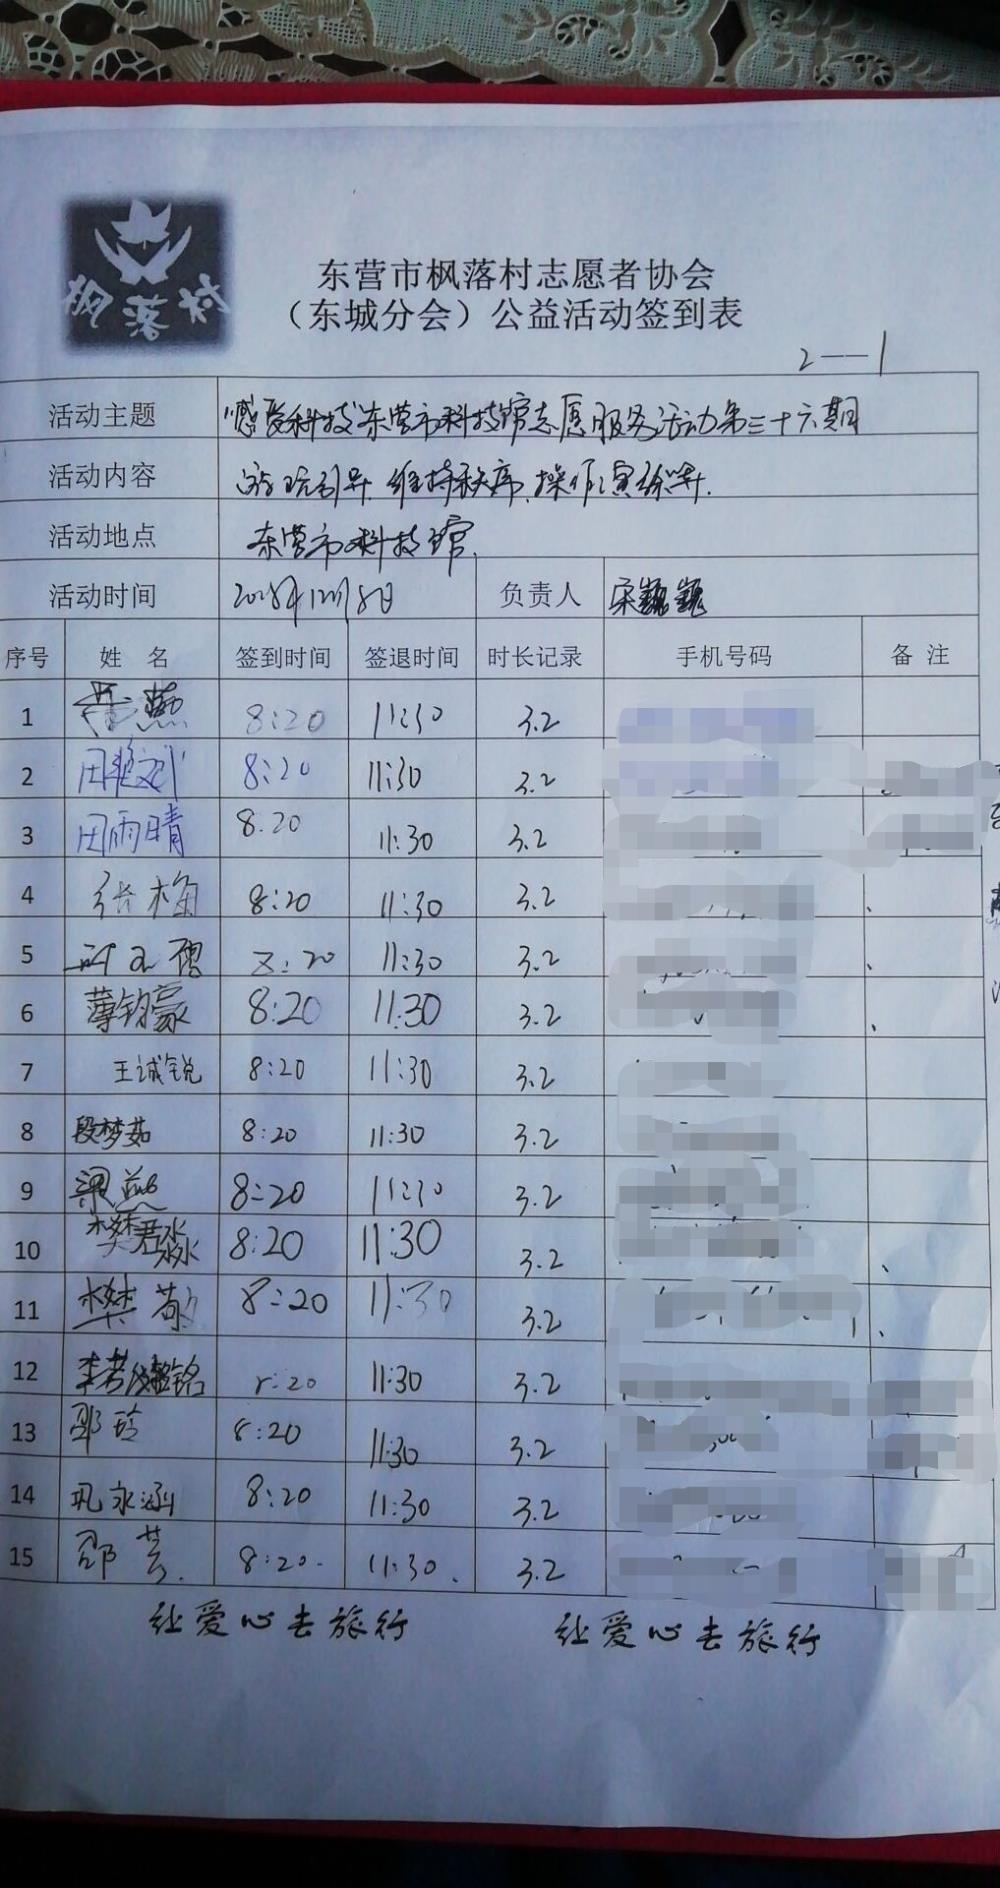 枫落村
东营市枫落村志愿者协会
（东城分会）公益活动签到表
2—1
活动主题 "感受科技"东营市科技馆志愿服务活动第三十六期
活动内容 游玩引导、维持秩序、操作演练等.
活动地点 东营市科技馆.
活动时间 2018年12月8日 负责人 宋巍巍
序号 姓名 签到时间 签退时间 时长记录 手机号码 备注
1 燕 8:20 11:30 3.2
2 田 8:20 11:30 3.2
3 田雨晴 8.20 11:30 3.2
4 张梅 8:20 11:30 3.2
5 8:20 11:30 3.2
6 薄钧豪 8:20 11:30 3.2
7 王诚锐 8:20 11:30 3.2
8 段梦茹 8:20 11:30 3.2
9 梁燕 8:20 11:30 3.2
10 樊君淼 8:20 11:30 3.2
11 樊 8:20 11:30 3.2
12 李 铭 8:20 11:30 3.2
13 邵玲 8:20 11:30 3.2
14 巩永涵 8:20 11:30 3.2
15 邵芸. 8:20. 11:30. 3.2
让爱心去旅行 让爱心去旅行